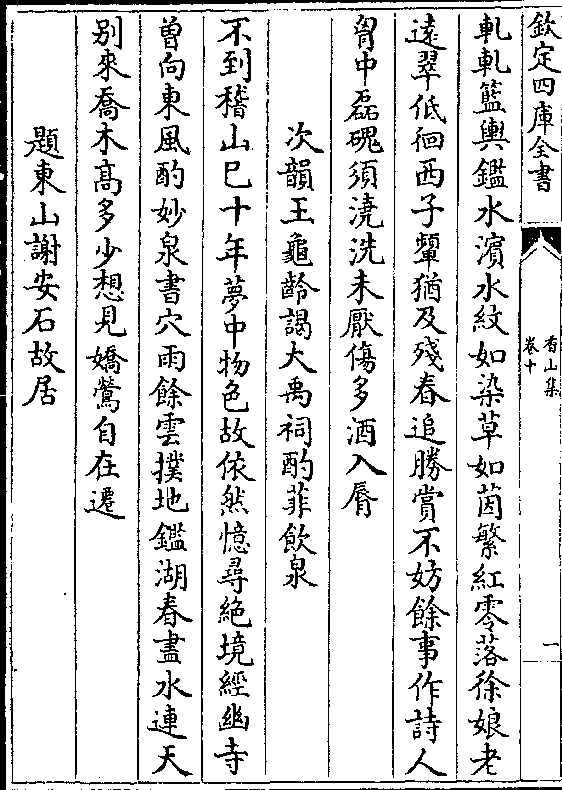 欽定四庫全書
香山集
卷十
一
軋軋籃輿鑑水濵水紋如染草如茵繁紅零落徐娘老
逺翠低徊西子顰猶及殘春追勝賞不妨餘事作詩人
胷中磊磈須澆洗未厭傷多酒入脣
次韻王龜齡謁大禹祠酌菲飲泉
不到稽山巳十年夢中物色故依然憶尋絶境經幽寺
曽向東風酌妙泉書穴雨餘雲撲地鑑湖春盡水連天
别來喬木髙多少想見嬌鶯自在遷
題東山謝安石故居